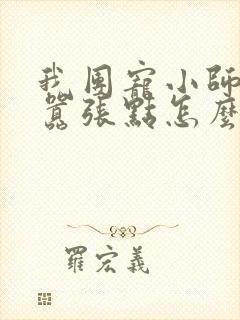 我團寵小師
囂張點怎麼
羅宏義